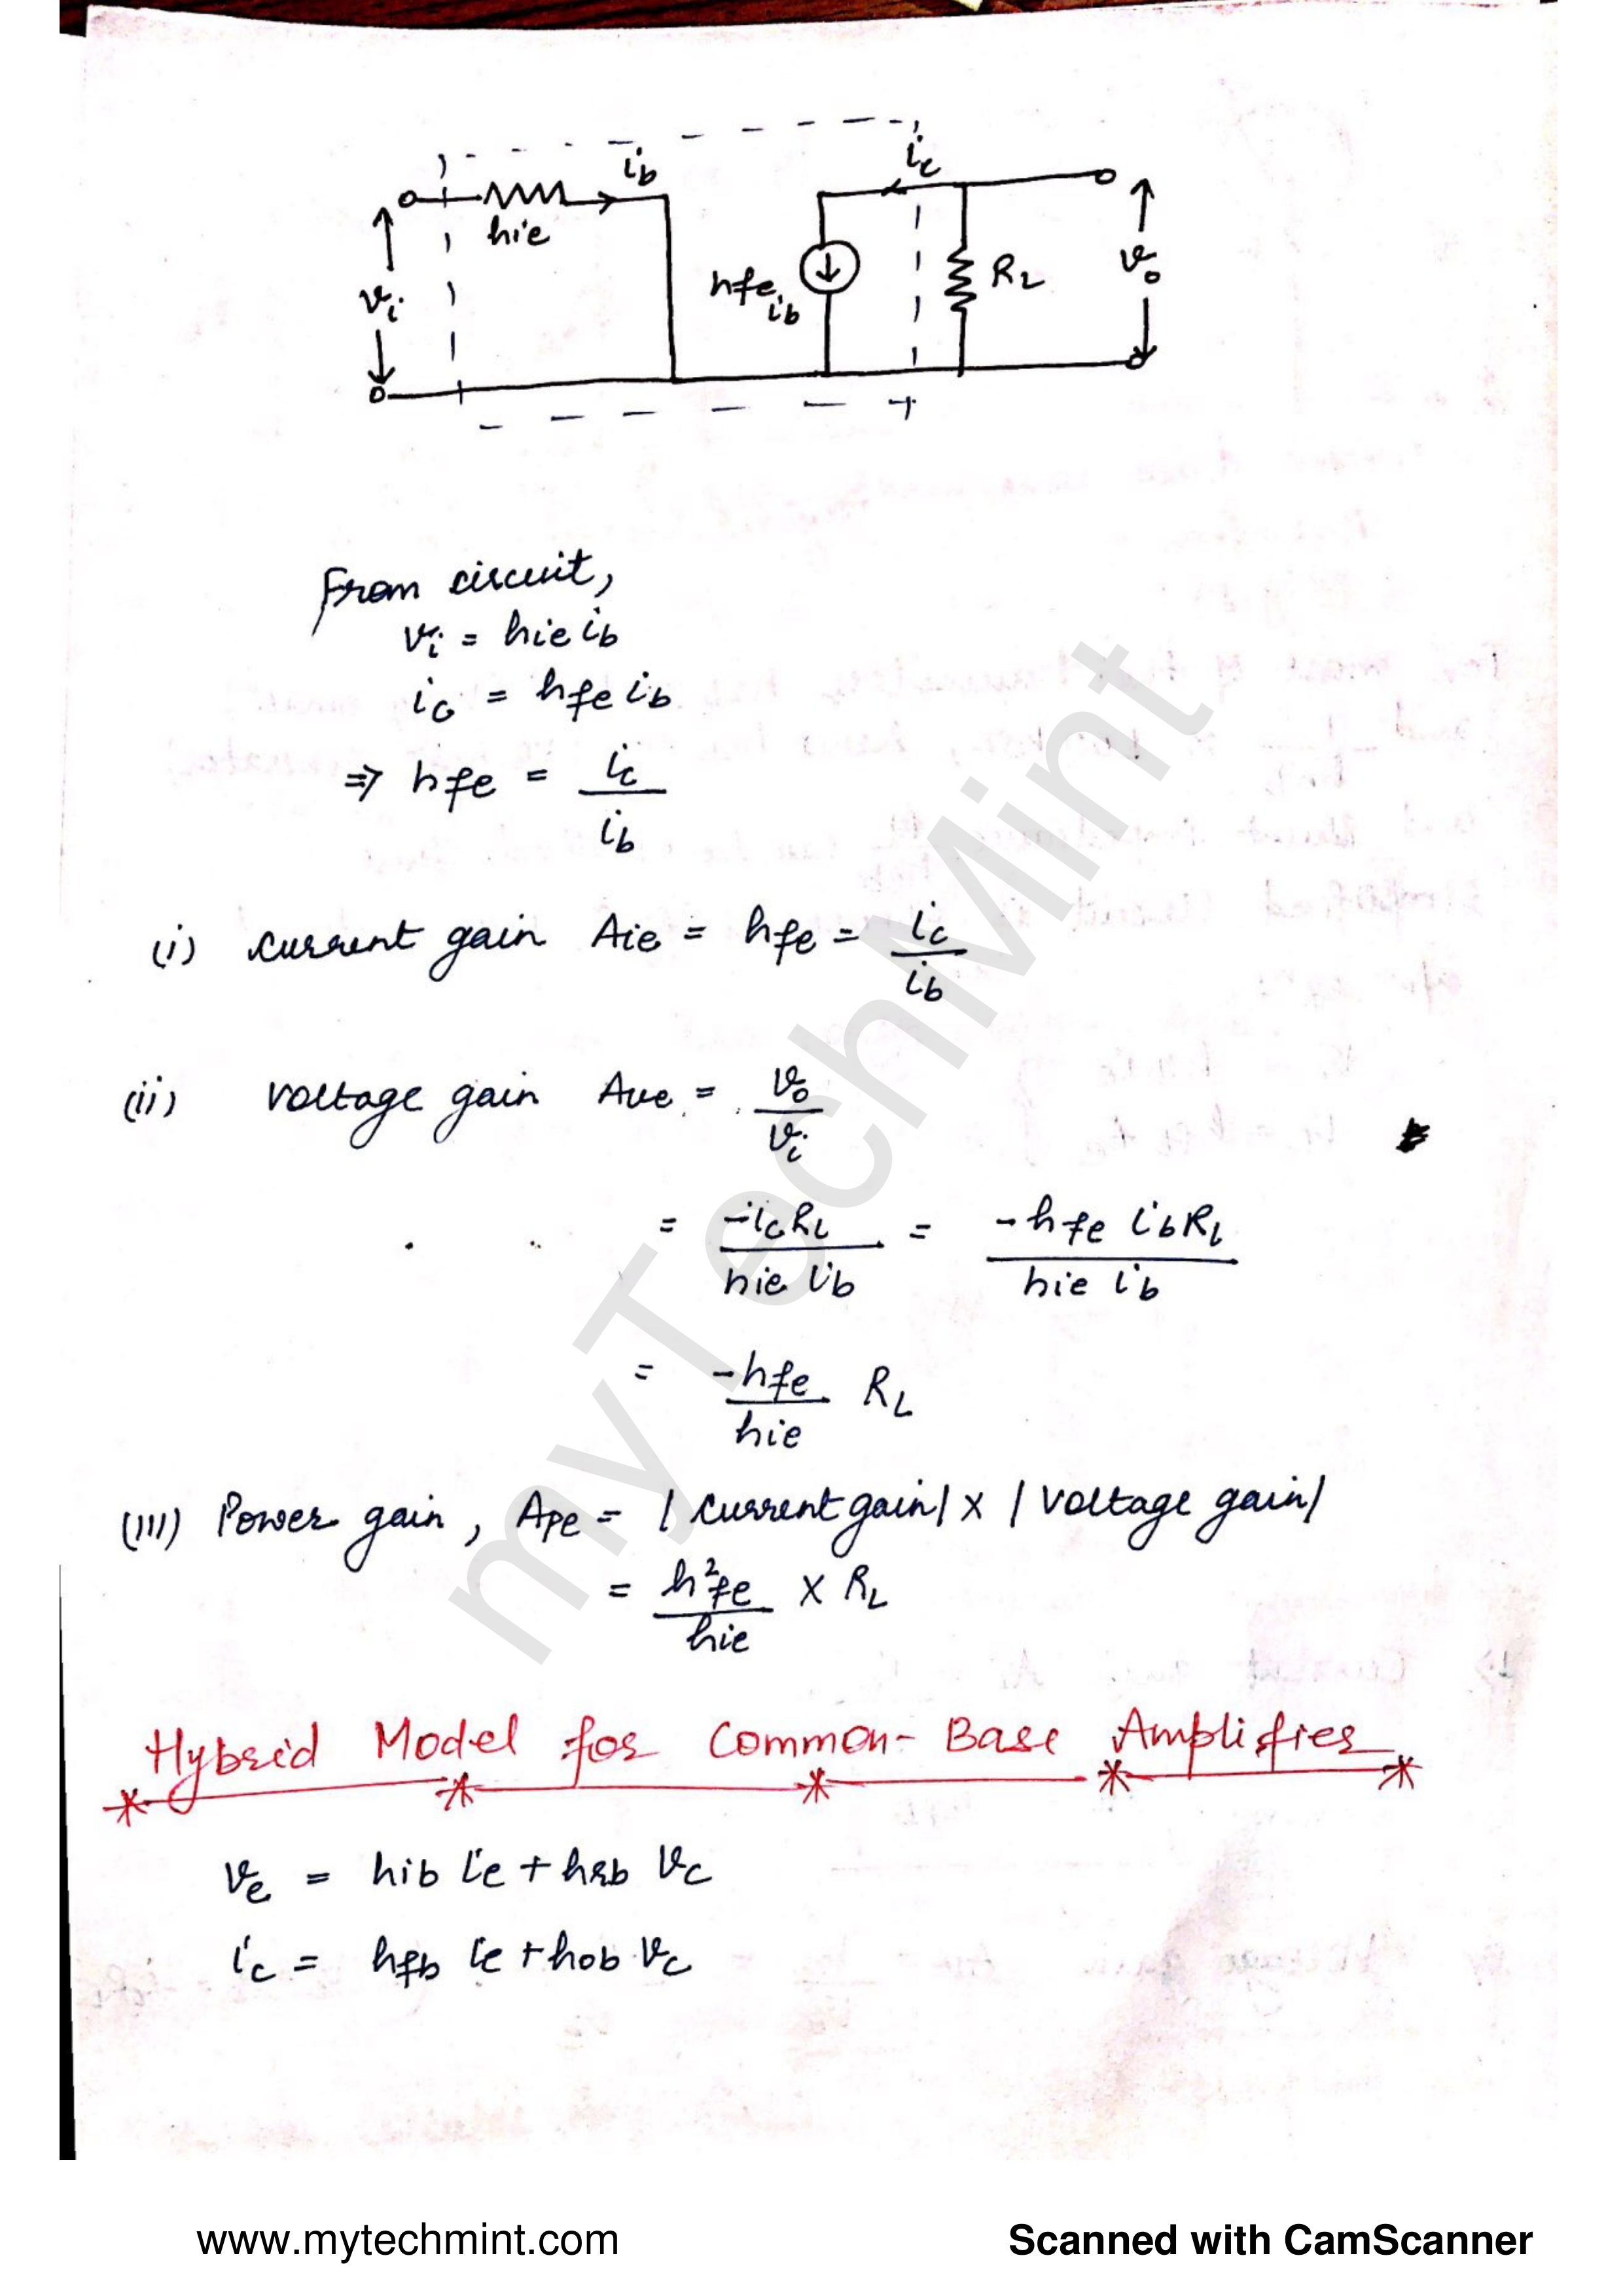 ib
ic
hie
vi
hfe ib
RL
vo
From circuit,
vi = hie ib
ic = hfe ib
⇒ hfe = ic / ib
(i) current gain Aie = hfe = ic / ib
(ii) voltage gain Ave = vo / vi
= -ic RL / hie ib = -hfe ib RL / hie ib
= -hfe / hie RL
(iii) Power gain, Ape = | current gain | × | voltage gain |
= h²fe / hie × RL
Hybrid Model for Common-Base Amplifier
ve = hib ie + hrb vc
ic = hfb ie + hob vc
myTechMint
www.mytechmint.com
Scanned with CamScanner